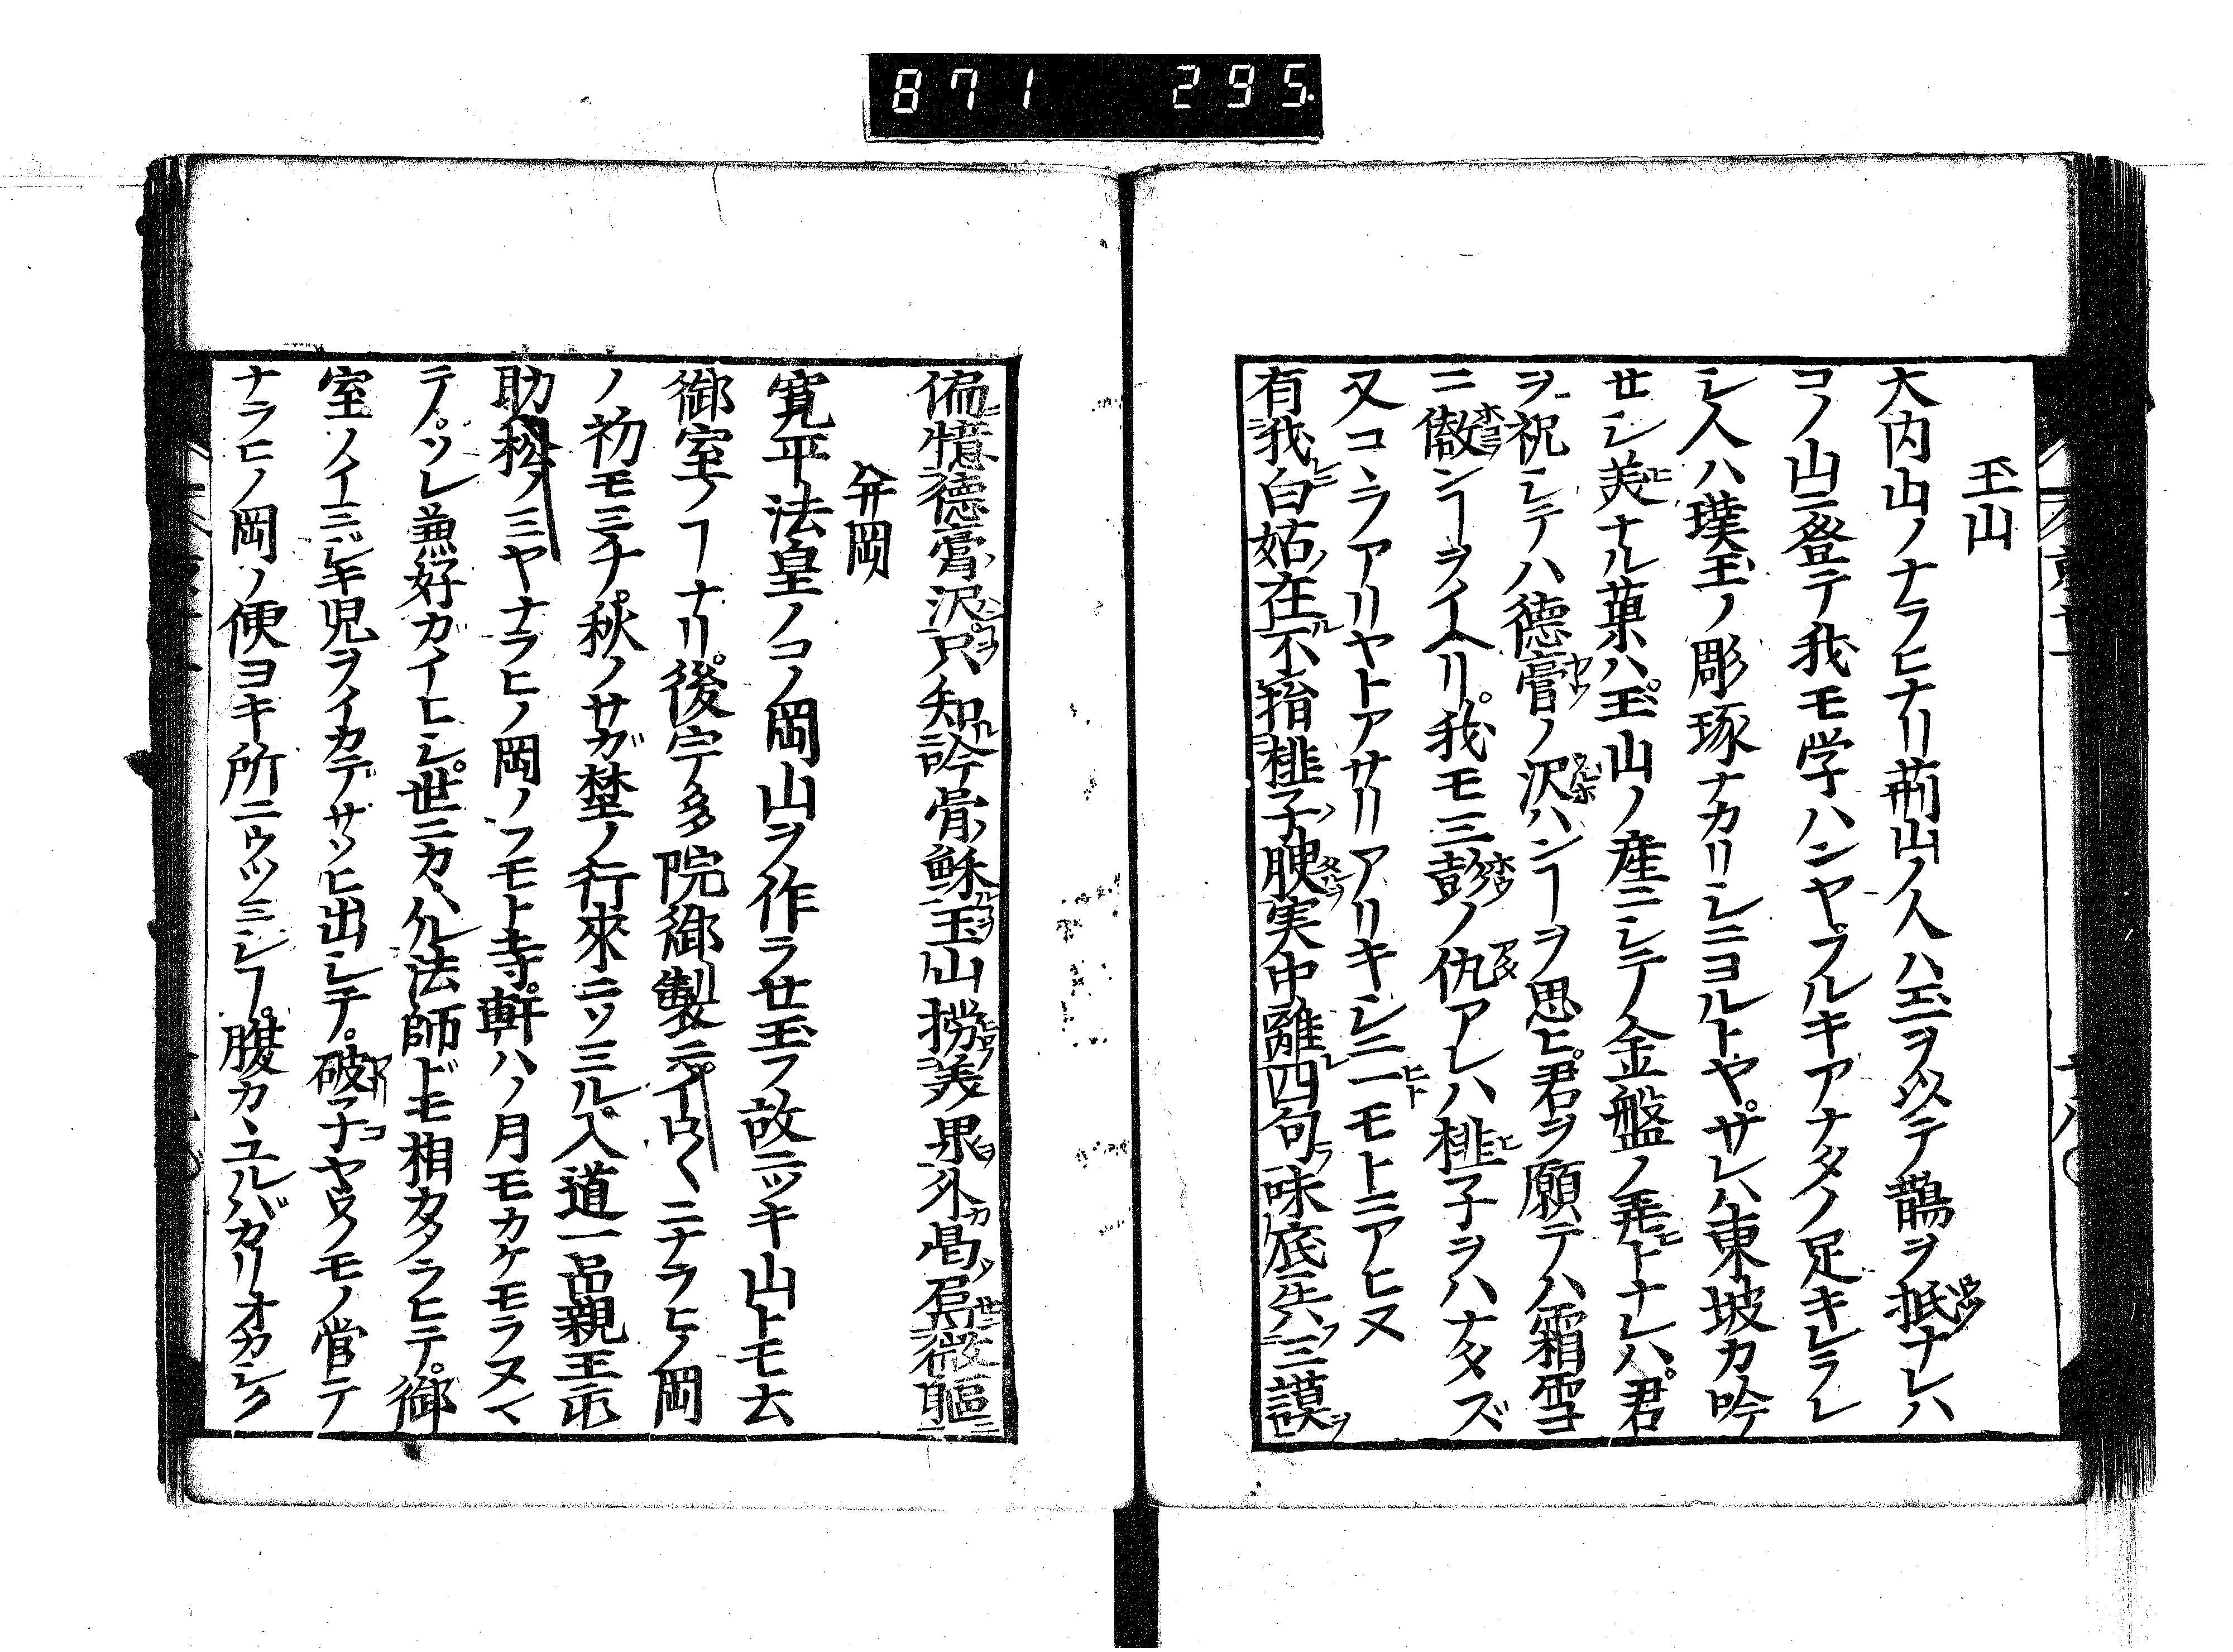 871 295.
玉山
大内山ノナラヒナリ荊山ノ人ハ玉ヲ以テ鵲ヲ抵ナレハ
コノ山ニ登テ我モ学ハンヤフルキアナタノ足キレラレ
シ人ハ璞玉ノ彫琢ナカリシニヨルトヤサレハ東坡カ吟
セシ美ナル菓ハ玉山ノ産ニシテ金盤ノ トナレハ君
ヲ祝シテハ徳膏ノ沢ハンヿヲ思ヒ君ヲ願テハ霜雪
ニ傲ンヿヲイヘリ我モ三彭ノ仇アレハ榧子ヲハナタズ
又コヽラアリヤトアサリアリキシニ一モトニアヒヌ
有我白姑在不 榧子腴実中離四句味底 三謨
偏憶徳膏沢只知 骨穌玉山撈美果外 居 軀
幷岡
寛平法皇ノコノ岡山ヲ作ラセ玉フ故ニツキ山トモ云
御室ノヿナリ後宇多院御製云イロ〳〵ニナラヒノ岡
ノ初モミチ秋ノサガ埜ノ行來ニソミル入道一品親王
助松ノミヤナラヒノ岡ノフモト寺軒ハノ月モカケモラヌマ
テノソレ兼好ガイヒシ世ニカヽル法師ドモ相カタラヒテ御
室ノイミジキ児ヲイカデサソヒ出シテ破子ヤウノモノ営テ
ナラヒノ岡ノ便ヨキ所ニウツミシヿ腹カヽユルバカリオカシク